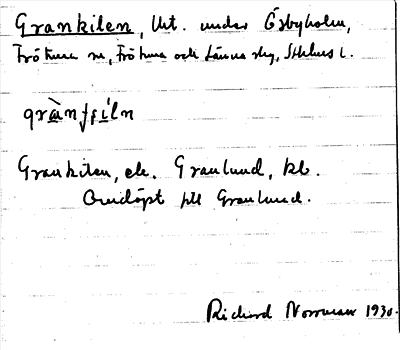 Grankilen, lht. under Ösbyholm,
Frötuna sn, Frötuna och Länna skg, Sthlms l.
grànɟçi̇̀ln
Grankilen, el. Granlund, kb.
Omdöpt till Granlund.
Richard Norrman 1930.